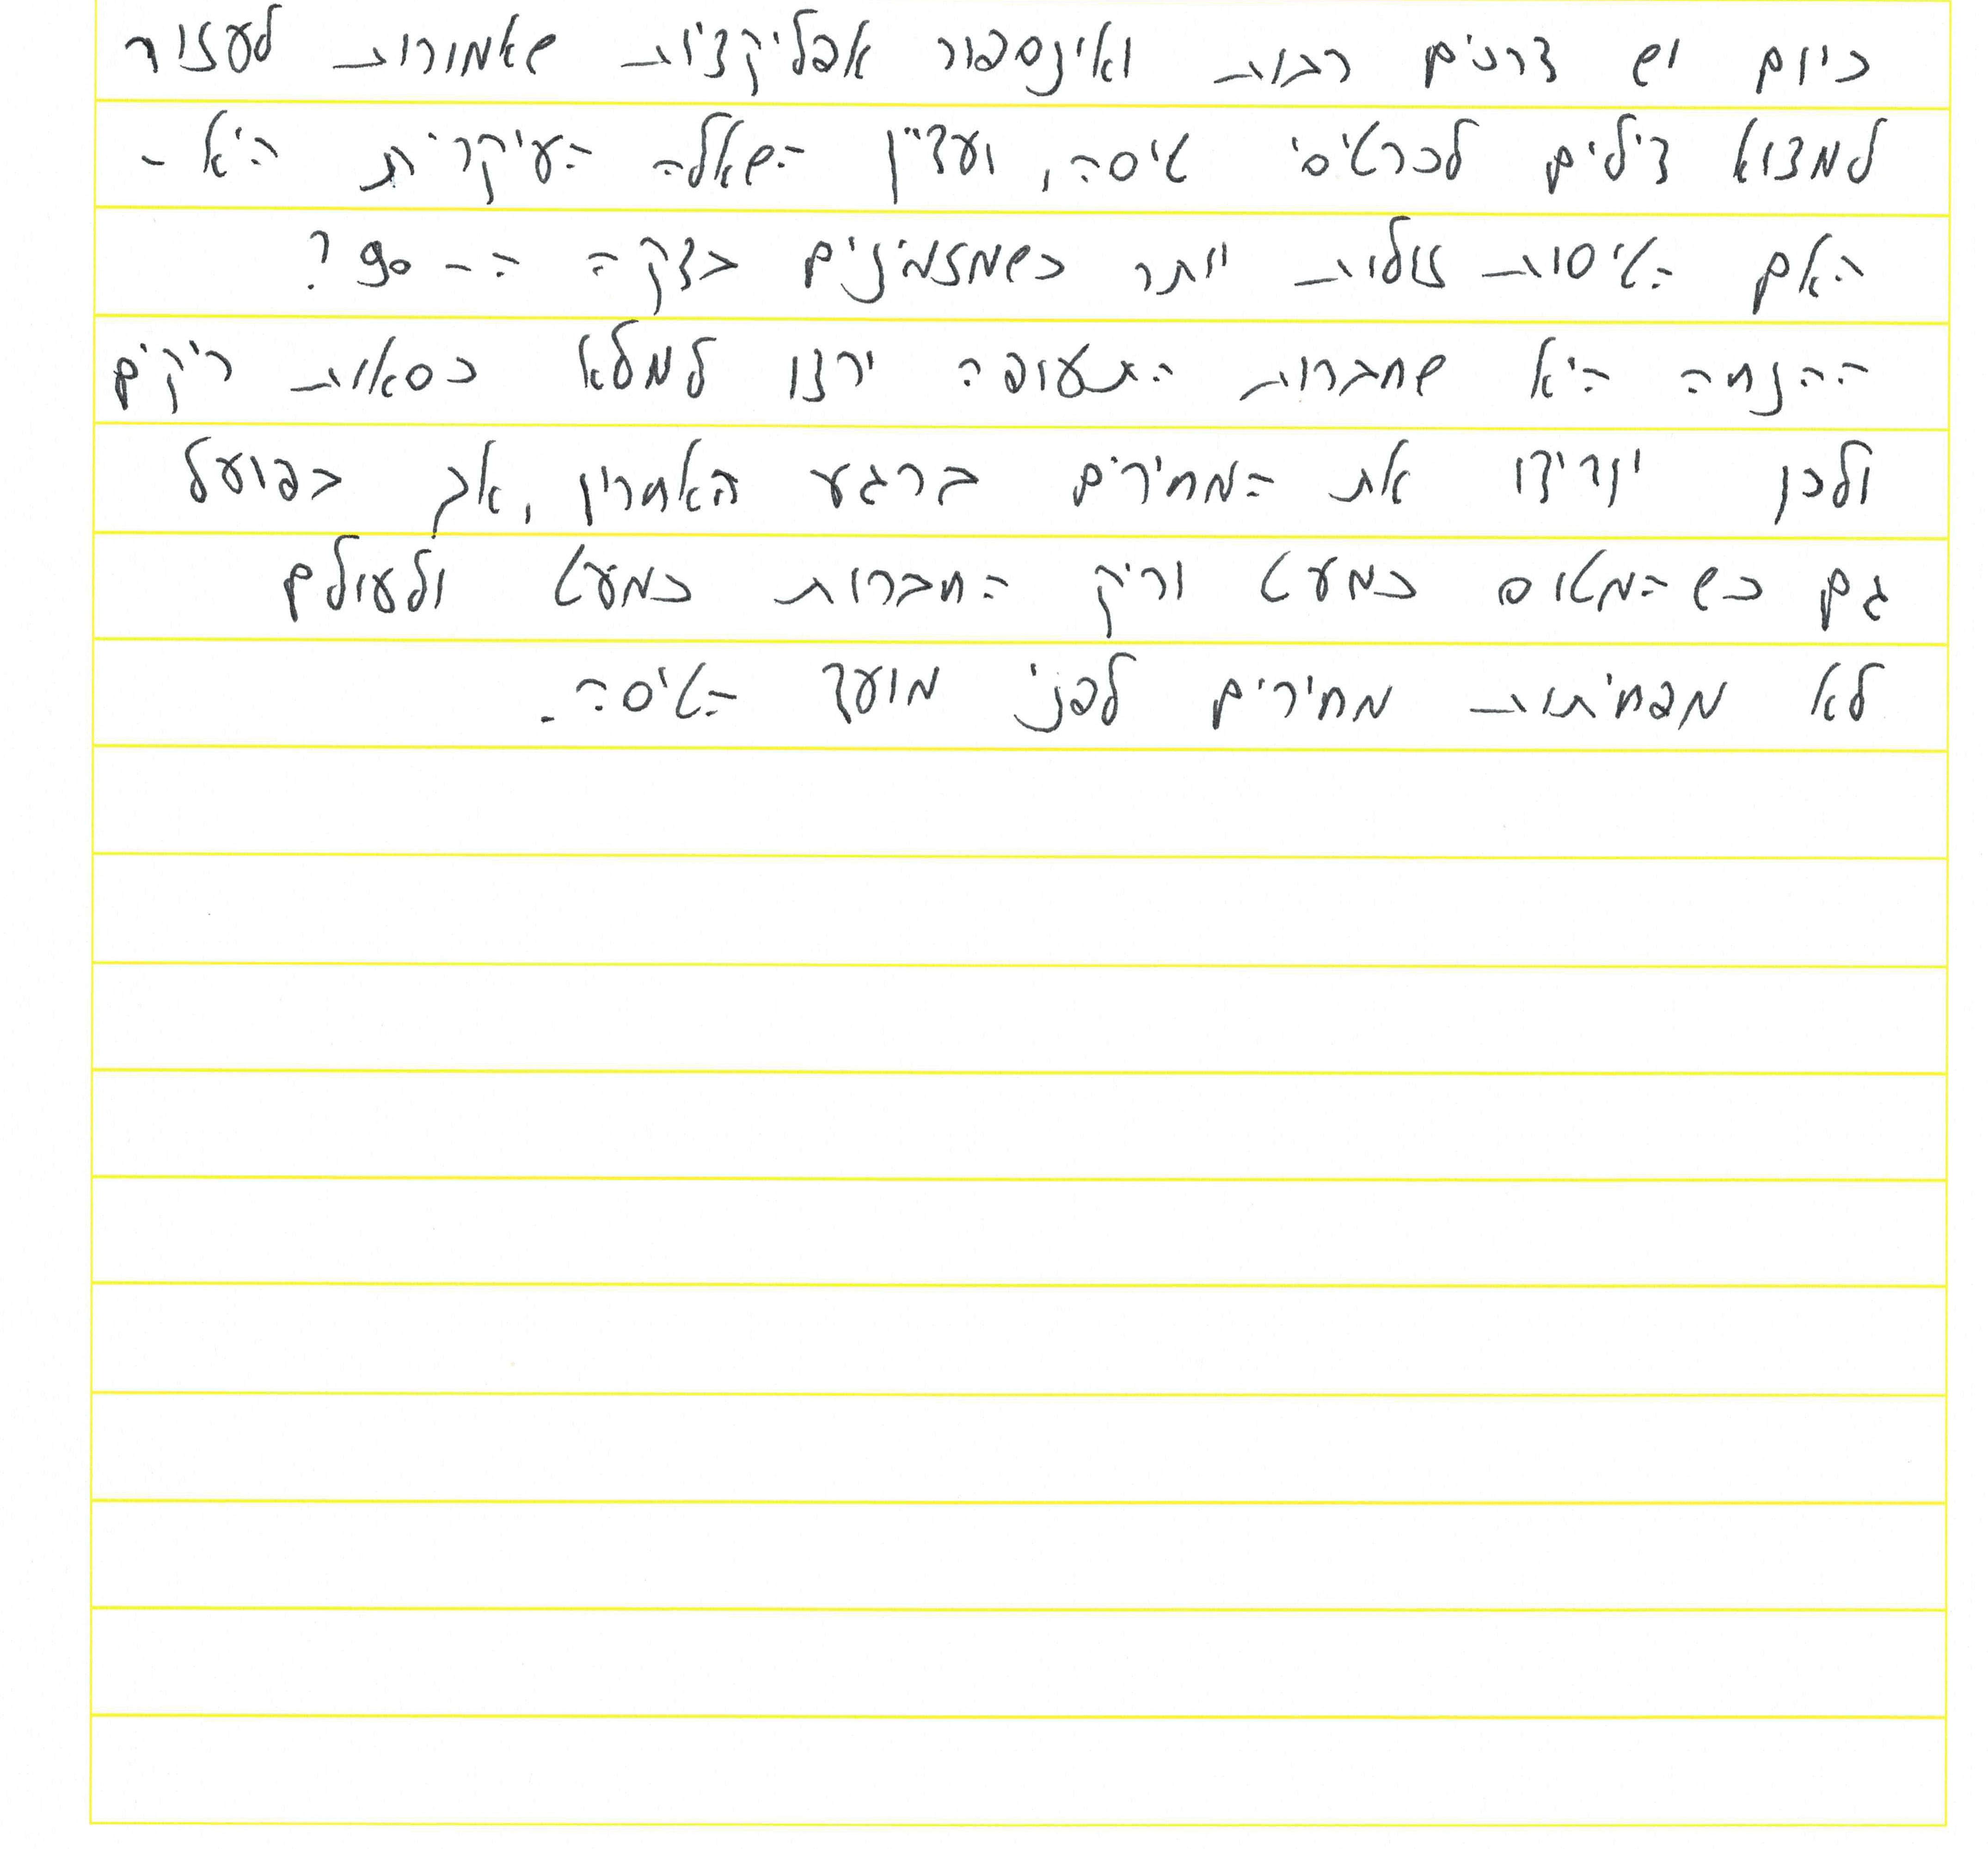 כיום יש דרכים רבות ואינספור אפליקציות שאמורות לעזור
למצוא דילים לכרטיסי טיסה, ועדיין השאלה העיקרית היא -
האם הטיסות זולות יותר כשמזמינים בדקה ה-90?
ההנחה היא שחברות התעופה ירצו למלא כסאות ריקים
ולכן יורידו את המחירים ברגע האחרון, אך בפועל
גם כשהמטוס כמעט וריק החברות כמעט ולעולם
לא מפחיתות מחירים לפני מועד הטיסה.